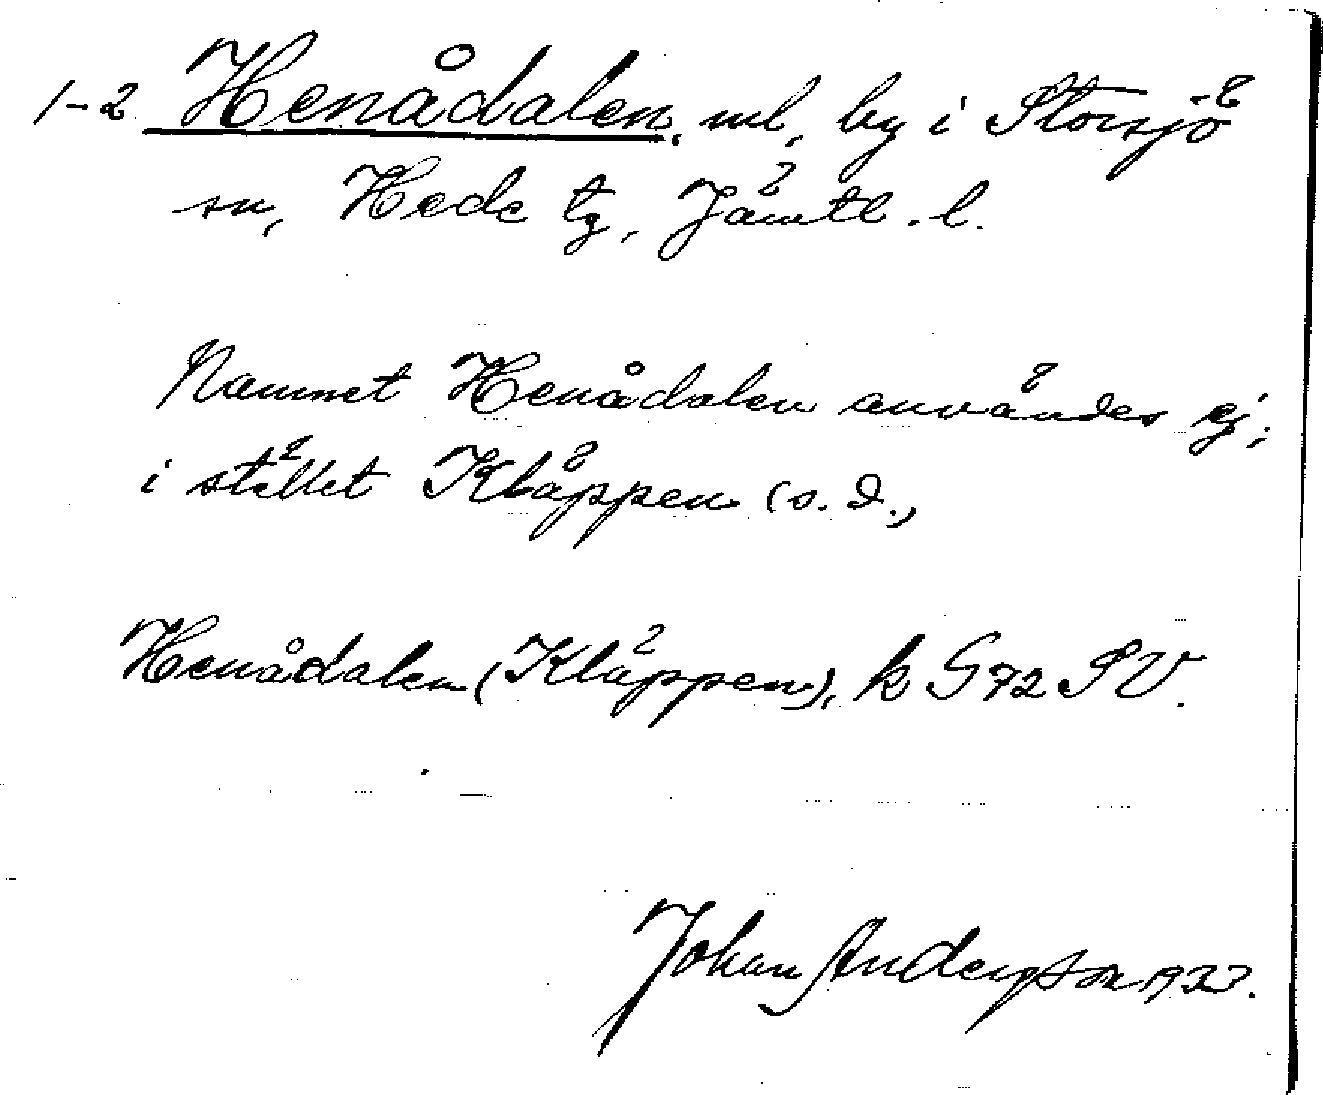 1-2 Henådalen, ml, by i Storsjö
sn, Hede tg, Jämtl. l.
Namnet Henådalen användes ej;
i stället Kläppen (s. d.,
Henådalen (Kläppen), k G 72 SV.
Johan Anderson